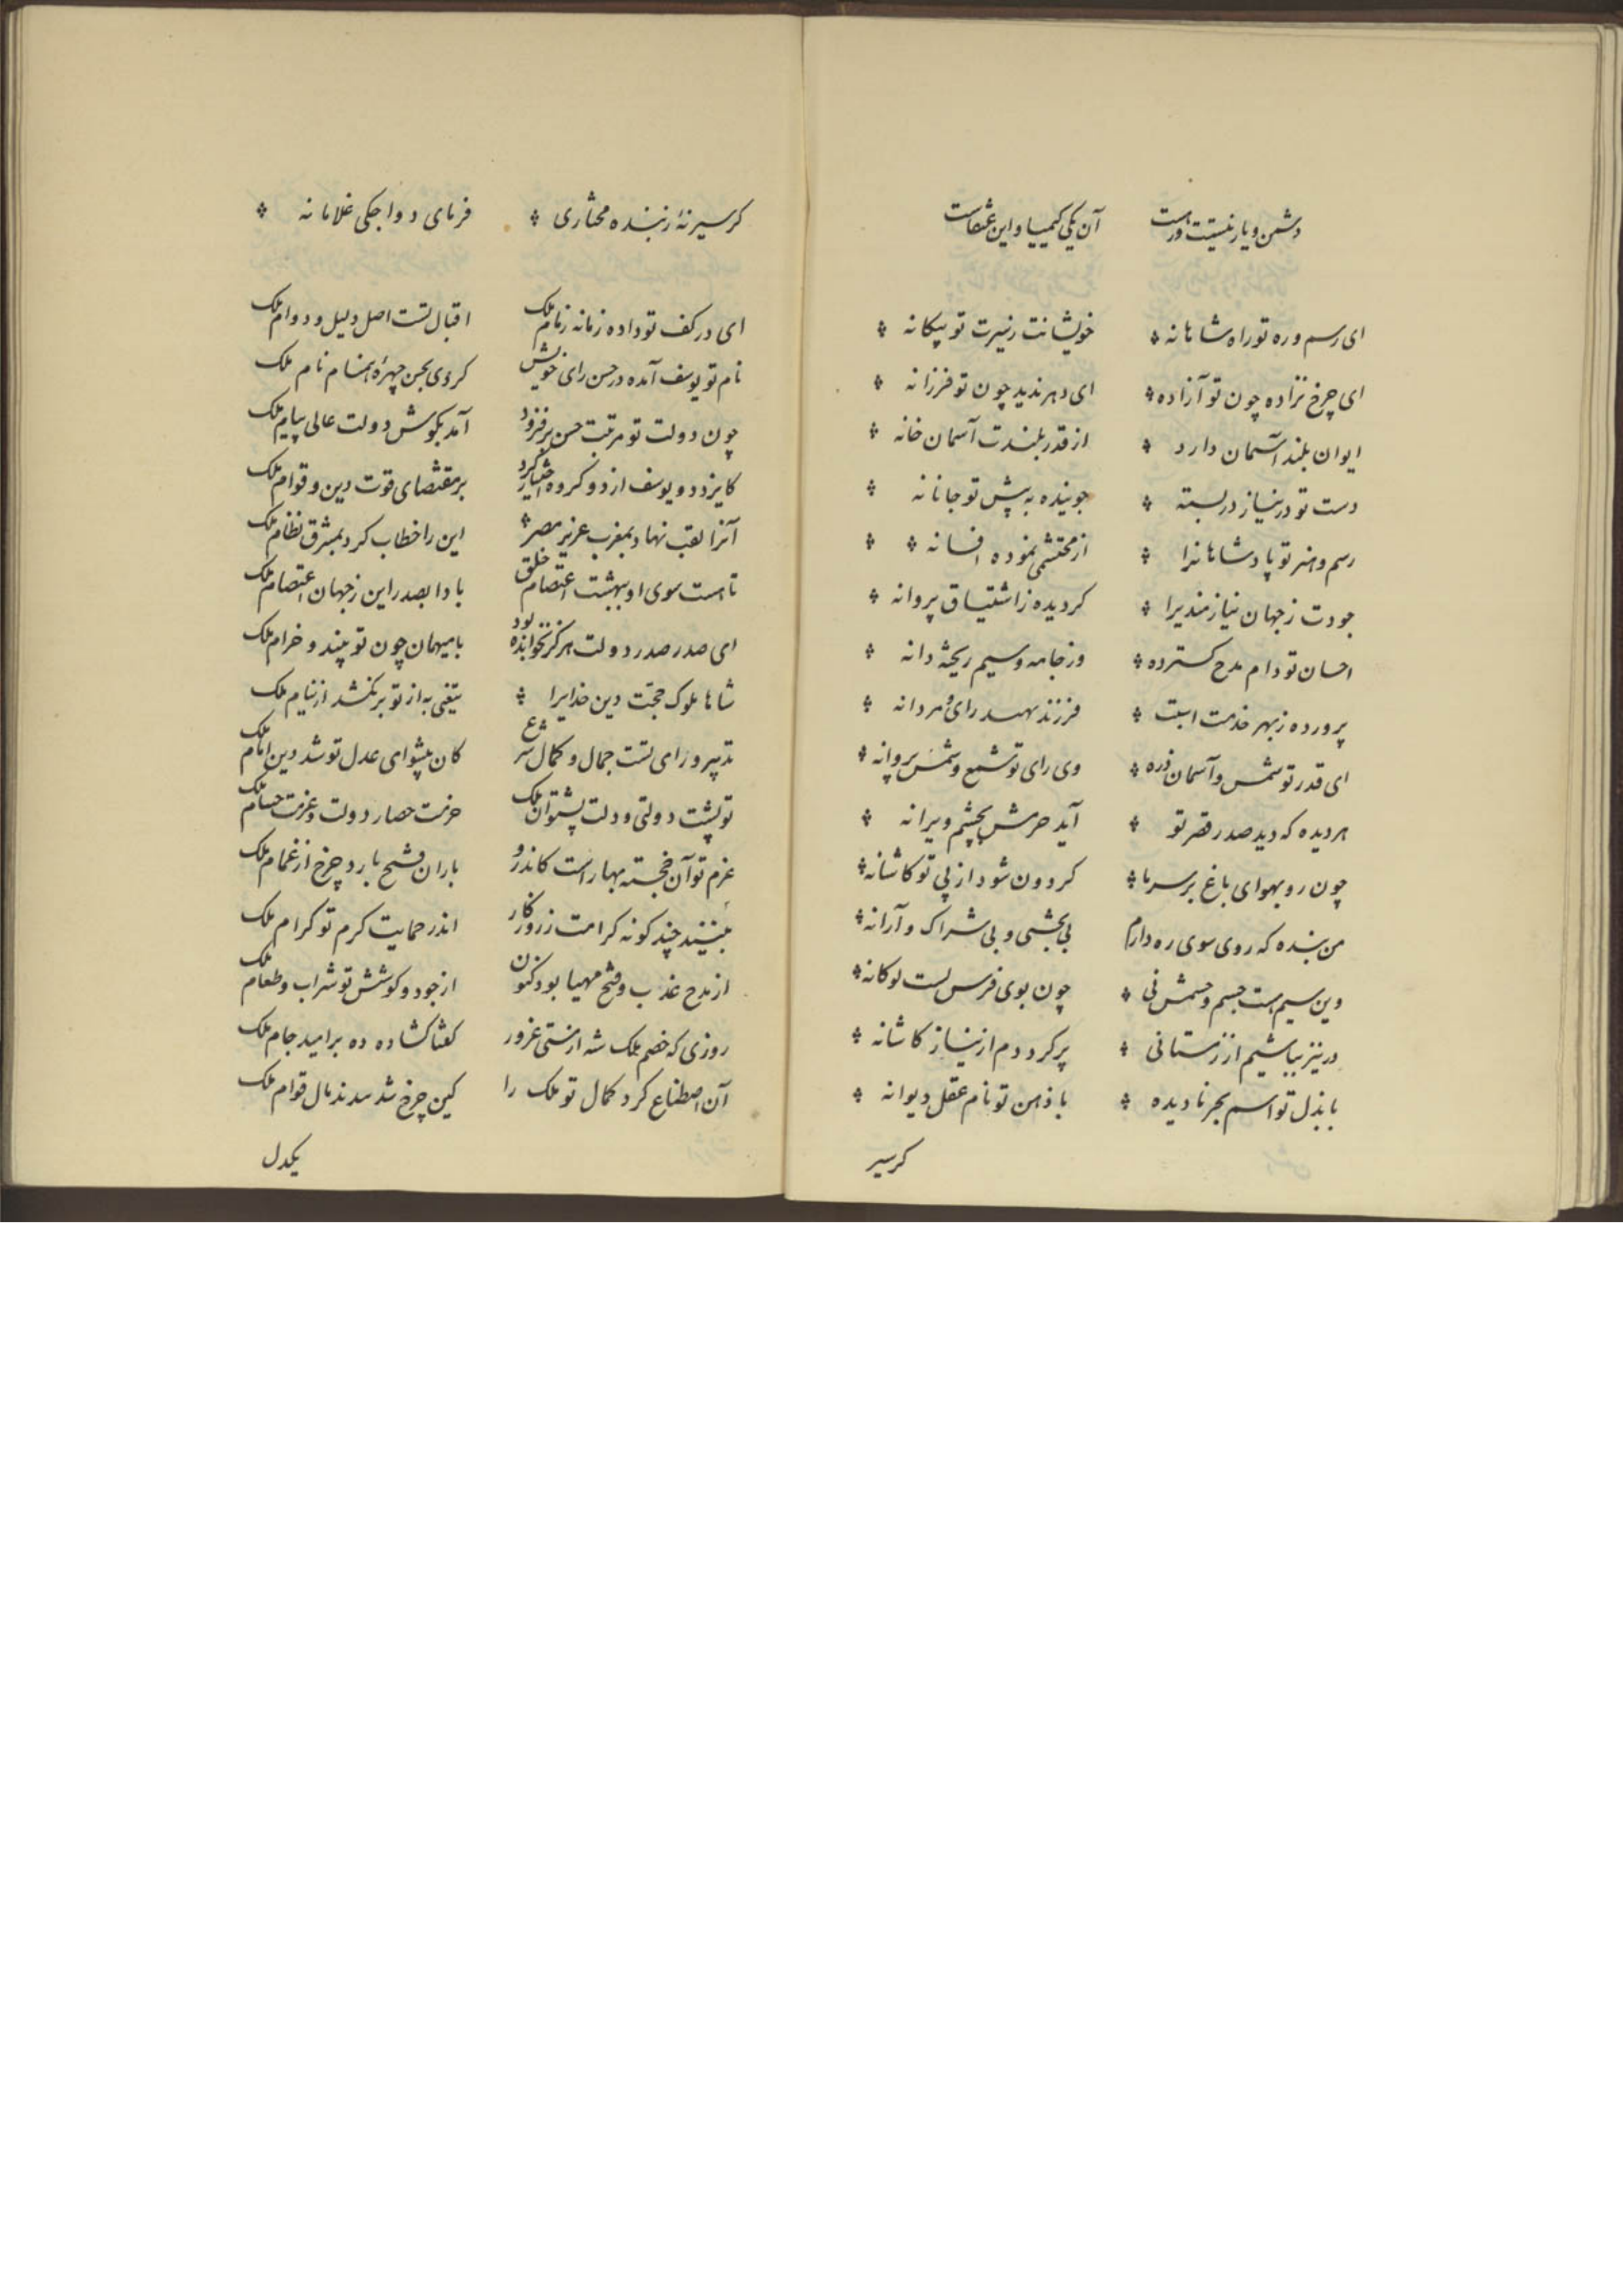 دشمن و یار نیستت و رست آن یکی کیمیا و این عنقاست
ای رسم و ره تو راه شاهانه خویشانت ز سیرت تو بیکانه
ای چرخ نزاده چون تو آزاده ای دهر ندید چون تو فرزانه
ایوان بلند آسمان دارد از قدر بلندت آسمان خانه
دست تو در نیاز در بسته جوینده به پیش تو جانانه
رسم و هنر تو پادشاهانرا از محتشمی نموده افسانه
جودت ز جهان نیازمندیرا کردیده ز اشتیاق پروانه
احسان تو دام مدح کسترده وز جامه و سیم ریخته دانه
پرورده ز بهر خدمت است فرزند سپهد رای مردانه
ای قدر تو شمس و آسمان ذره وی رای تو شمع و شمس پروانه
هر دیده که دید صدر قصر تو آید حرمش بچشم ویرانه
چون رو بهوای باغ بر سرما کردون شود از پی تو کاشانه
من بنده که روی سوی ره دارم بی بخشی و بی شراک و آرانه
وین سیم هست جسم و حشمش نی چون بوی فرس لست لوکانه
در نیز بباشیم از زمستانی پر کرد دم از نیاز کاشانه
با بذل تو اسم بحر نادیده با ذهن تو نام عقل دیوانه
کرسیر
کرسیر نهٔ ز بنده مختاری فرمای دواجکی غلامانه
ای در کف تو داده زمانه زمام ملک اقبال تست اصل دلیل و دوام ملک
نام تو یوسف آمده در حسن رای خویش کردی بحسن چهره همنام نام ملک
چون دولت تو مرتبت حسن بر فزود آمد بکوش دولت عالی پیام ملک
کایزد دو یوسف از دو کروه اختیار کرد بر مقتضای قوت دین و قوام ملک
آنرا لقب نهاد بمغرب عزیز مصر این را خطاب کرد بمشرق نظام ملک
تا هست سوی او ببهشت اعتصام خلق بادا بصدر این ز جهان اعتصام ملک
ای صدر صدر دولت هرکز نخوانده بود با میهمان چون تو پند و خرام ملک
شاها ملوک حجت دین خدایرا تیغی به از تو بر نکشد از نیام ملک
تدبیر و رای تست جمال و کمال شرع کان پیشوای عدل تو شد دین امام ملک
تو پشت دولتی و دلت پشتوان ملک حزمت حصار دولت و عزمت حسام ملک
عزم تو آن خجسته بهار است کاندرو باران فتح بارد چرخ از غمام ملک
بینند چند کونه کرامت ز روزکار اندر حمایت کرم تو کرام ملک
از مدح عذب و فتح مهیا بود کنون از جود و کوشش تو شراب و طعام ملک
روزی که خصم ملک شه از مستی غرور کفتا کشاده ده بر امید جام ملک
آن اصطناع کرد کمال تو ملک را کین چرخ شد سدند مال قوام ملک
یکدل